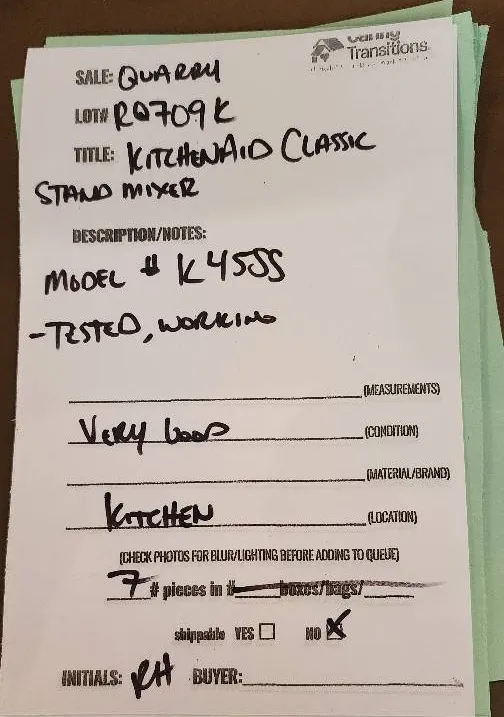 Caring
Transitions.
SALE: QUARRY
LOT# RQ709K
TITLE: KITCHENAID CLASSIC
STAND MIXER
DESCRIPTION/NOTES:
MODEL # K45SS
-TESTED, WORKING
(MEASUREMENTS)
VERY GOOD (CONDITION)
(MATERIAL/BRAND)
KITCHEN (LOCATION)
(CHECK PHOTOS FOR BLUR/LIGHTING BEFORE ADDING TO QUEUE)
7 # pieces in # boxes/bags/
shippable YES ☐ NO ☒
INITIALS: RH BUYER: